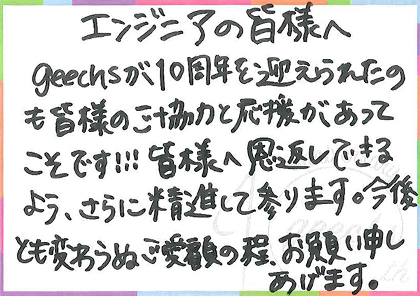 エンジニアの皆様へ
geechsが10周年を迎えられたの
も皆様のご協力と応援があって
こそです!!! 皆様へ恩返しできる
よう、さらに精進して参ります。今後
とも変わらぬご愛顧の程、お願い申し
あげます。